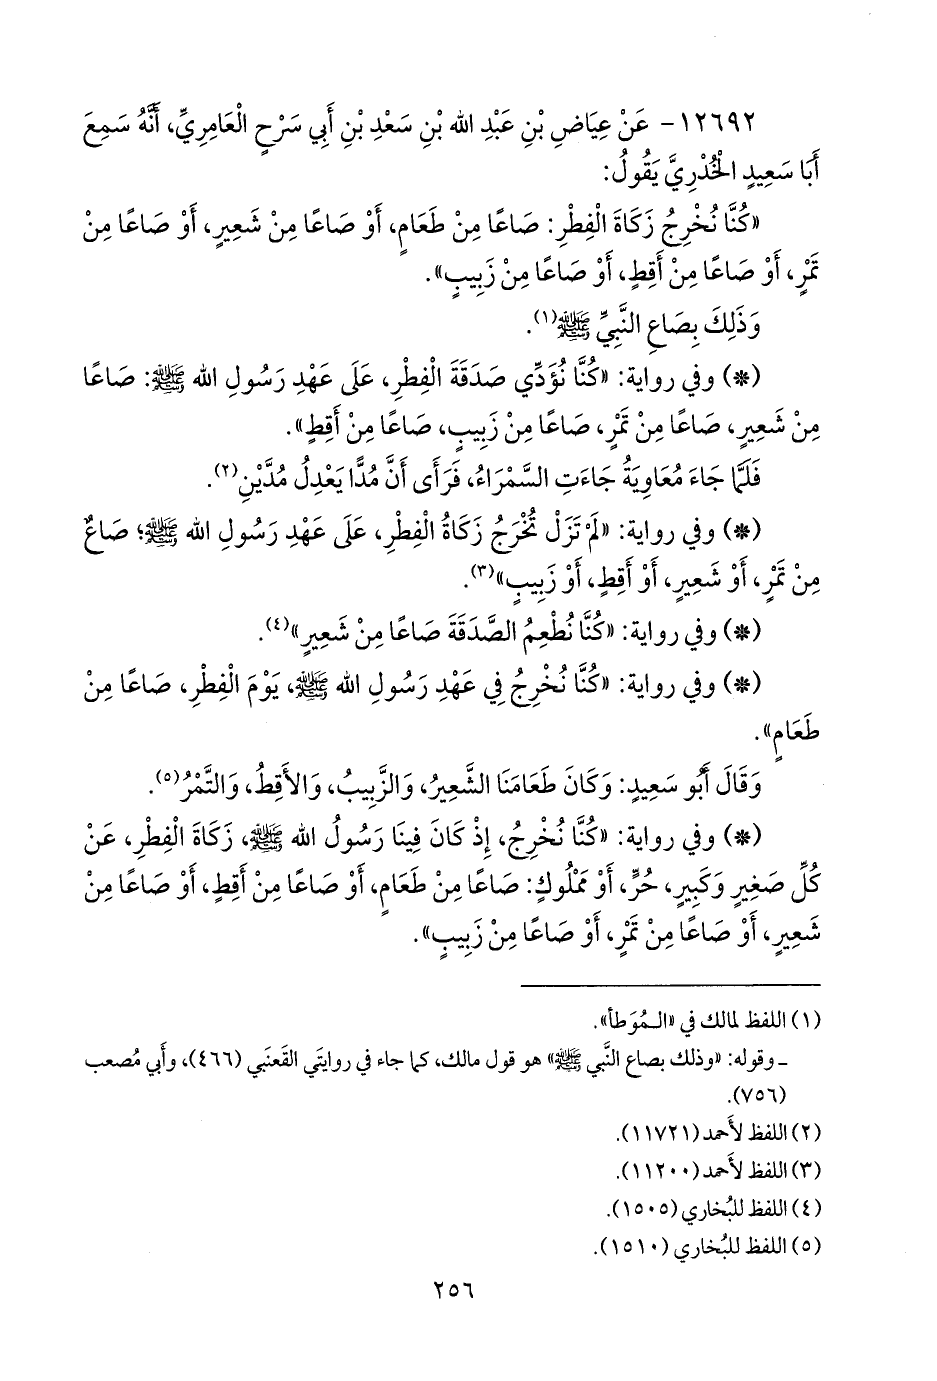 ١٢٦٩٢- عَنْ عِيَاضِ بْنِ عَبْدِ الله بْنِ سَعْدِ بْنِ أَبِي سَرْحٍ الْعَامِرِيِّ، أَنَّهُ سَمِعَ
أَبَا سَعِيدٍ الْخُدْرِيَّ يَقُولُ:
«كُنَّا نُخْرِجُ زَكَاةَ الْفِطْرِ: صَاعًا مِنْ طَعَامٍ، أَوْ صَاعًا مِنْ شَعِيرٍ، أَوْ صَاعًا مِنْ
تَمْرٍ، أَوْ صَاعًا مِنْ أَقِطٍ، أَوْ صَاعًا مِنْ زَبِيبٍ».
وَذَلِكَ بِصَاعِ النَّبِيِّ ﷺ(١).
(*) وفي رواية: «كُنَّا نُؤَدِّي صَدَقَةَ الْفِطْرِ، عَلَى عَهْدِ رَسُولِ الله ﷺ: صَاعًا
مِنْ شَعِيرٍ، صَاعًا مِنْ تَمْرٍ، صَاعًا مِنْ زَبِيبٍ، صَاعًا مِنْ أَقِطٍ».
فَلَمَّا جَاءَ مُعَاوِيَةُ جَاءَتِ السَّمْرَاءُ، فَرَأَى أَنَّ مُدًّا يَعْدِلُ مُدَّيْنِ(٢).
(*) وفي رواية: «لَمْ تَزَلْ تُخْرَجُ زَكَاةُ الْفِطْرِ، عَلَى عَهْدِ رَسُولِ الله ﷺ؛ صَاعٌ
مِنْ تَمْرٍ، أَوْ شَعِيرٍ، أَوْ أَقِطٍ، أَوْ زَبِيبٍ»(٣).
(*) وفي رواية: «كُنَّا نُطْعِمُ الصَّدَقَةَ صَاعًا مِنْ شَعِيرٍ»(٤).
(*) وفي رواية: «كُنَّا نُخْرِجُ فِي عَهْدِ رَسُولِ الله ﷺ، يَوْمَ الْفِطْرِ، صَاعًا مِنْ
طَعَامٍ».
وَقَالَ أَبُو سَعِيدٍ: وَكَانَ طَعَامَنَا الشَّعِيرُ، وَالزَّبِيبُ، وَالأَقِطُ، وَالتَّمْرُ(٥).
(*) وفي رواية: «كُنَّا نُخْرِجُ، إِذْ كَانَ فِينَا رَسُولُ الله ﷺ، زَكَاةَ الْفِطْرِ، عَنْ
كُلِّ صَغِيرٍ وَكَبِيرٍ، حُرٍّ، أَوْ مَمْلُوكٍ: صَاعًا مِنْ طَعَامٍ، أَوْ صَاعًا مِنْ أَقِطٍ، أَوْ صَاعًا مِنْ
شَعِيرٍ، أَوْ صَاعًا مِنْ تَمْرٍ، أَوْ صَاعًا مِنْ زَبِيبٍ».
(١) اللفظ لمالك في «الـمُوَطأ».
ـ وقوله: «وذلك بصاع النَّبي ﷺ» هو قول مالك، كما جاء في روايتَي القَعنَبي (٤٦٦)، وأَبي مُصعب
(٧٥٦).
(٢) اللفظ لأَحمد (١١٧٢١).
(٣) اللفظ لأَحمد (١١٢٠٠).
(٤) اللفظ للبُخاري (١٥٠٥).
(٥) اللفظ للبُخاري (١٥١٠).
٢٥٦